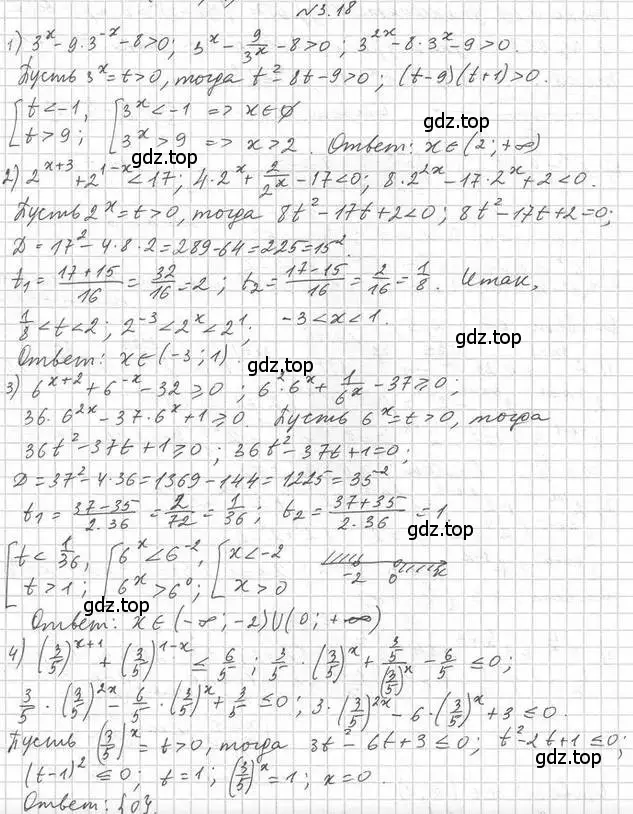 №3.18
1) 3^x - 9·3^-x - 8 > 0; 3^x - 9/3^x - 8 > 0; 3^2x - 8·3^x - 9 > 0.
Пусть 3^x = t > 0, тогда t^2 - 8t - 9 > 0; (t-9)(t+1) > 0.
[ t < -1, [ 3^x < -1 => x ∈ ∅
t > 9; 3^x > 9 => x > 2. Ответ: x ∈ (2; +∞)
gdz.top
2) 2^x+3 + 2^1-x < 17; 4·2^x + 2/2^x - 17 < 0; 8·2^2x - 17·2^x + 2 < 0.
gdz.top
Пусть 2^x = t > 0, тогда 8t^2 - 17t + 2 < 0; 8t^2 - 17t + 2 = 0;
D = 17^2 - 4·8·2 = 289 - 64 = 225 = 15^2.
t1 = (17+15)/16 = 32/16 = 2; t2 = (17-15)/16 = 2/16 = 1/8. Итак,
gdz.top
1/8 < t < 2; 2^-3 < 2^x < 2^1; -3 < x < 1.
Ответ: x ∈ (-3; 1).
gdz.top
3) 6^x+2 + 6^-x - 32 ≥ 0; 6^2·6^x + 1/6^x - 37 ≥ 0;
36·6^2x - 37·6^x + 1 ≥ 0. Пусть 6^x = t > 0, тогда
gdz.top
36t^2 - 37t + 1 ≥ 0; 36t^2 - 37t + 1 = 0;
D = 37^2 - 4·36 = 1369 - 144 = 1225 = 35^2
t1 = (37-35)/(2·36) = 2/72 = 1/36; t2 = (37+35)/(2·36) = 1
gdz.top
[ t < 1/36, [ 6^x < 6^-2, [ x < -2
t > 1; 6^x > 6^0; x > 0 -2 0 x
gdz.top
Ответ: x ∈ (-∞; -2) ∪ (0; +∞)
gdz.top
4) (3/5)^x+1 + (3/5)^1-x ≤ 6/5; 3/5·(3/5)^x + (3/5)/(3/5)^x - 6/5 ≤ 0;
3/5·(3/5)^2x - 6/5·(3/5)^x + 3/5 ≤ 0; 3·(3/5)^2x - 6·(3/5)^x + 3 ≤ 0.
gdz.top
Пусть (3/5)^x = t > 0, тогда 3t^2 - 6t + 3 ≤ 0; t^2 - 2t + 1 ≤ 0;
(t-1)^2 ≤ 0; t = 1; (3/5)^x = 1; x = 0.
gdz.top
Ответ: {0}.